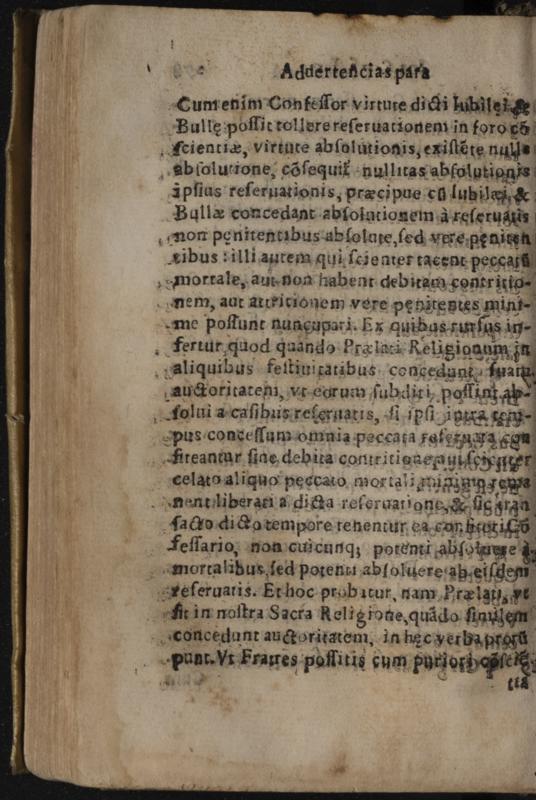 Aduertencias para
Cum enim Confessor virtute dicti Iubilei &
Bullę possit tollere reseruationem in foro cō
scientiæ, virtute absolutionis, existēte nulla
absolutione, cōsequit̃ nullitas absolutionis
ipsius reseruationis, præcipue cũ Iubilæi, &
Bullæ concedant absolutionem à reseruatis
non penitentibus absolute, sed vere peniten
tibus: illi autem qui scienter tacent peccatũ
mortale, aut non habent debitam contritio-
nem, aut attritionem vere penitentes mini-
me possunt nuncupari. Ex quibus rursus in-
fertur quod quando Prælati Religionum in
aliquibus festiuitatibus concedunt suam
auctoritatem, vt eorum subditi possint ab-
solui a casibus reseruatis, si ipsi intra tem-
pus concessum omnia peccata reseruata con
fiteantur sine debita contritione, vel scienter
celato aliquo peccato mortali, minime rema
nent liberati a dicta reseruatione, & sic tran
sacto dicto tempore tenentur ea confiteri Cõ
fessario, non cuicunq; potenti absoluere à
mortalibus, sed potenti absoluere ab eisdem
reseruatis. Et hoc probatur, nam Prælati, vt
fit in nostra Sacra Religione, quãdo similem
concedunt auctoritatem, in hęc verba prorũ
punt. Vt Fratres possitis cum puriori cõsciẽ
tia